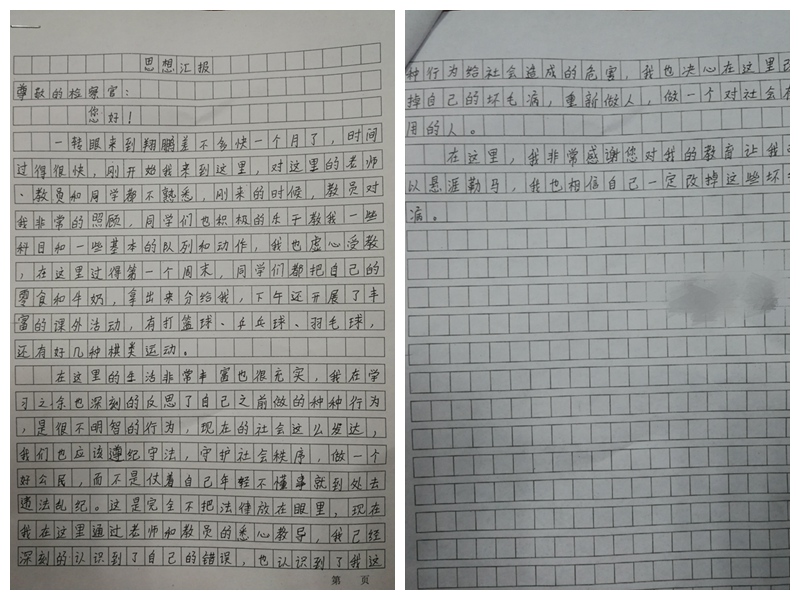 思想汇报
尊敬的检察官：
您好！
一转眼来到翔鹏差不多快一个月了，时间
过得很快，刚开始我来到这里，对这里的老师
、教员和同学都不熟悉，刚来的时候，教员对
我非常的照顾，同学们也积极的乐于教我一些
科目和一些基本的队列和动作，我也虚心受教
，在这里过得第一个周末，同学们都把自己的
零食和牛奶，拿出来分给我，下午还开展了丰
富的课外活动，有打篮球、乒乓球、羽毛球，
还有好几种棋类运动。
在这里的生活非常丰富也很充实，我在学
习之余也深刻的反思了自己之前做的种种行为
，是很不明智的行为，现在的社会这么发达，
我们也应该遵纪守法，守护社会秩序，做一个
好公民，而不是仗着自己年轻不懂事就到处去
违法乱纪。这是完全不把法律放在眼里，现在
我在这里通过老师和教员的悉心教导，我已经
深刻的认识到了自己的错误，也认识到了我这
第 页
种行为给社会造成的危害，我也决心在这里改
掉自己的坏毛病，重新做人，做一个对社会有
用的人。
在这里，我非常感谢您对我的教育让我
以悬涯勒马，我也相信自己一定改掉这些坏
病。